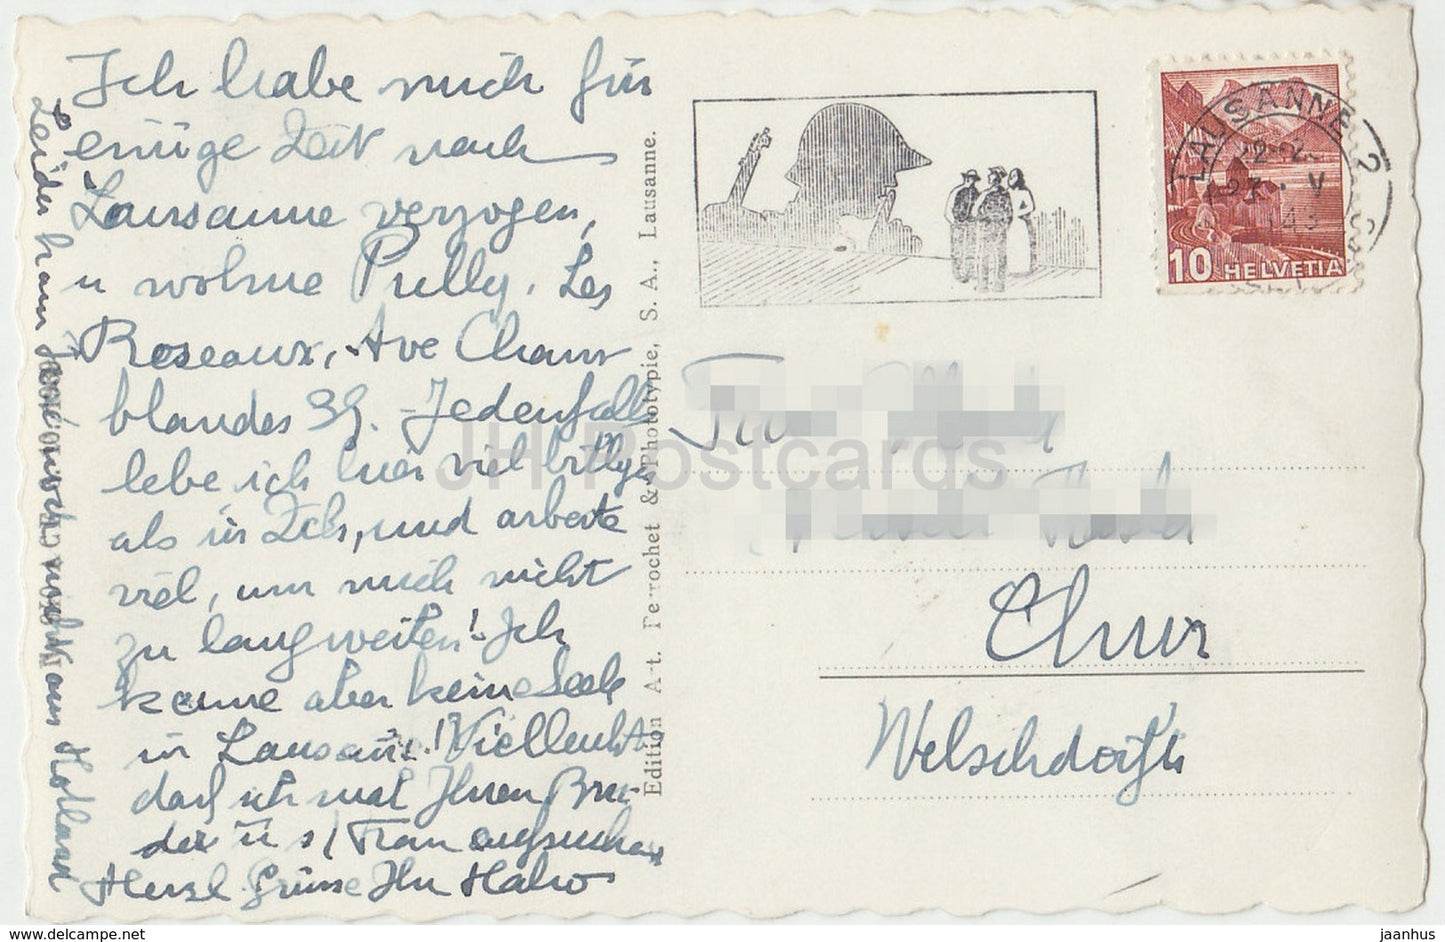 Ich habe mich für
einige Zeit nach
Lausanne verzogen,
u wohne Prilly. Les
Roseaux, Ave Cham
blandes 39. Jedenfalls
lebe ich hier viel billiger
als in Zch, und arbeite
viel, um mich nicht
zu langweilen! Ich
kenne aber keine Seele
in Lausanne! Vielleicht
darf ich mal Ihren Bru-
der u s/ Frau aufsuchen
Herzl. Grüsse Ihr
Leider kam nichts aus Holland
Edition Art. Perrochet & Phototypie, S. A., Lausanne.
LAUSANNE 2
10 HELVETIA
Frau
Chur
Welschdörfli
JH Postcards
www.delcampe.net
jaanhus